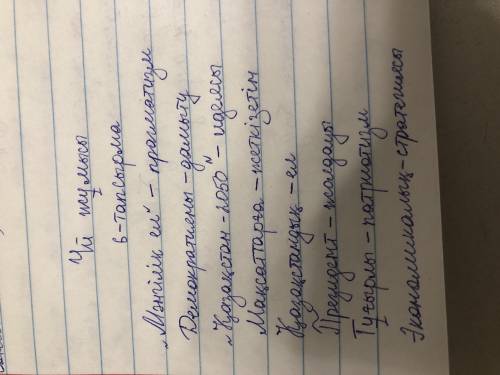 Үй жұмысы
6-тапсырма
„Мәңгілік ел" - прагматизм
Демократияны - дамыту
„Қазақстан - 2050" - идеясы
Мақсаттарға - жеткізетін
Қазақстандық - ел
Президент - жолдауы
Тұғырлы - патриотизм
Экономикалық - стратегиясы